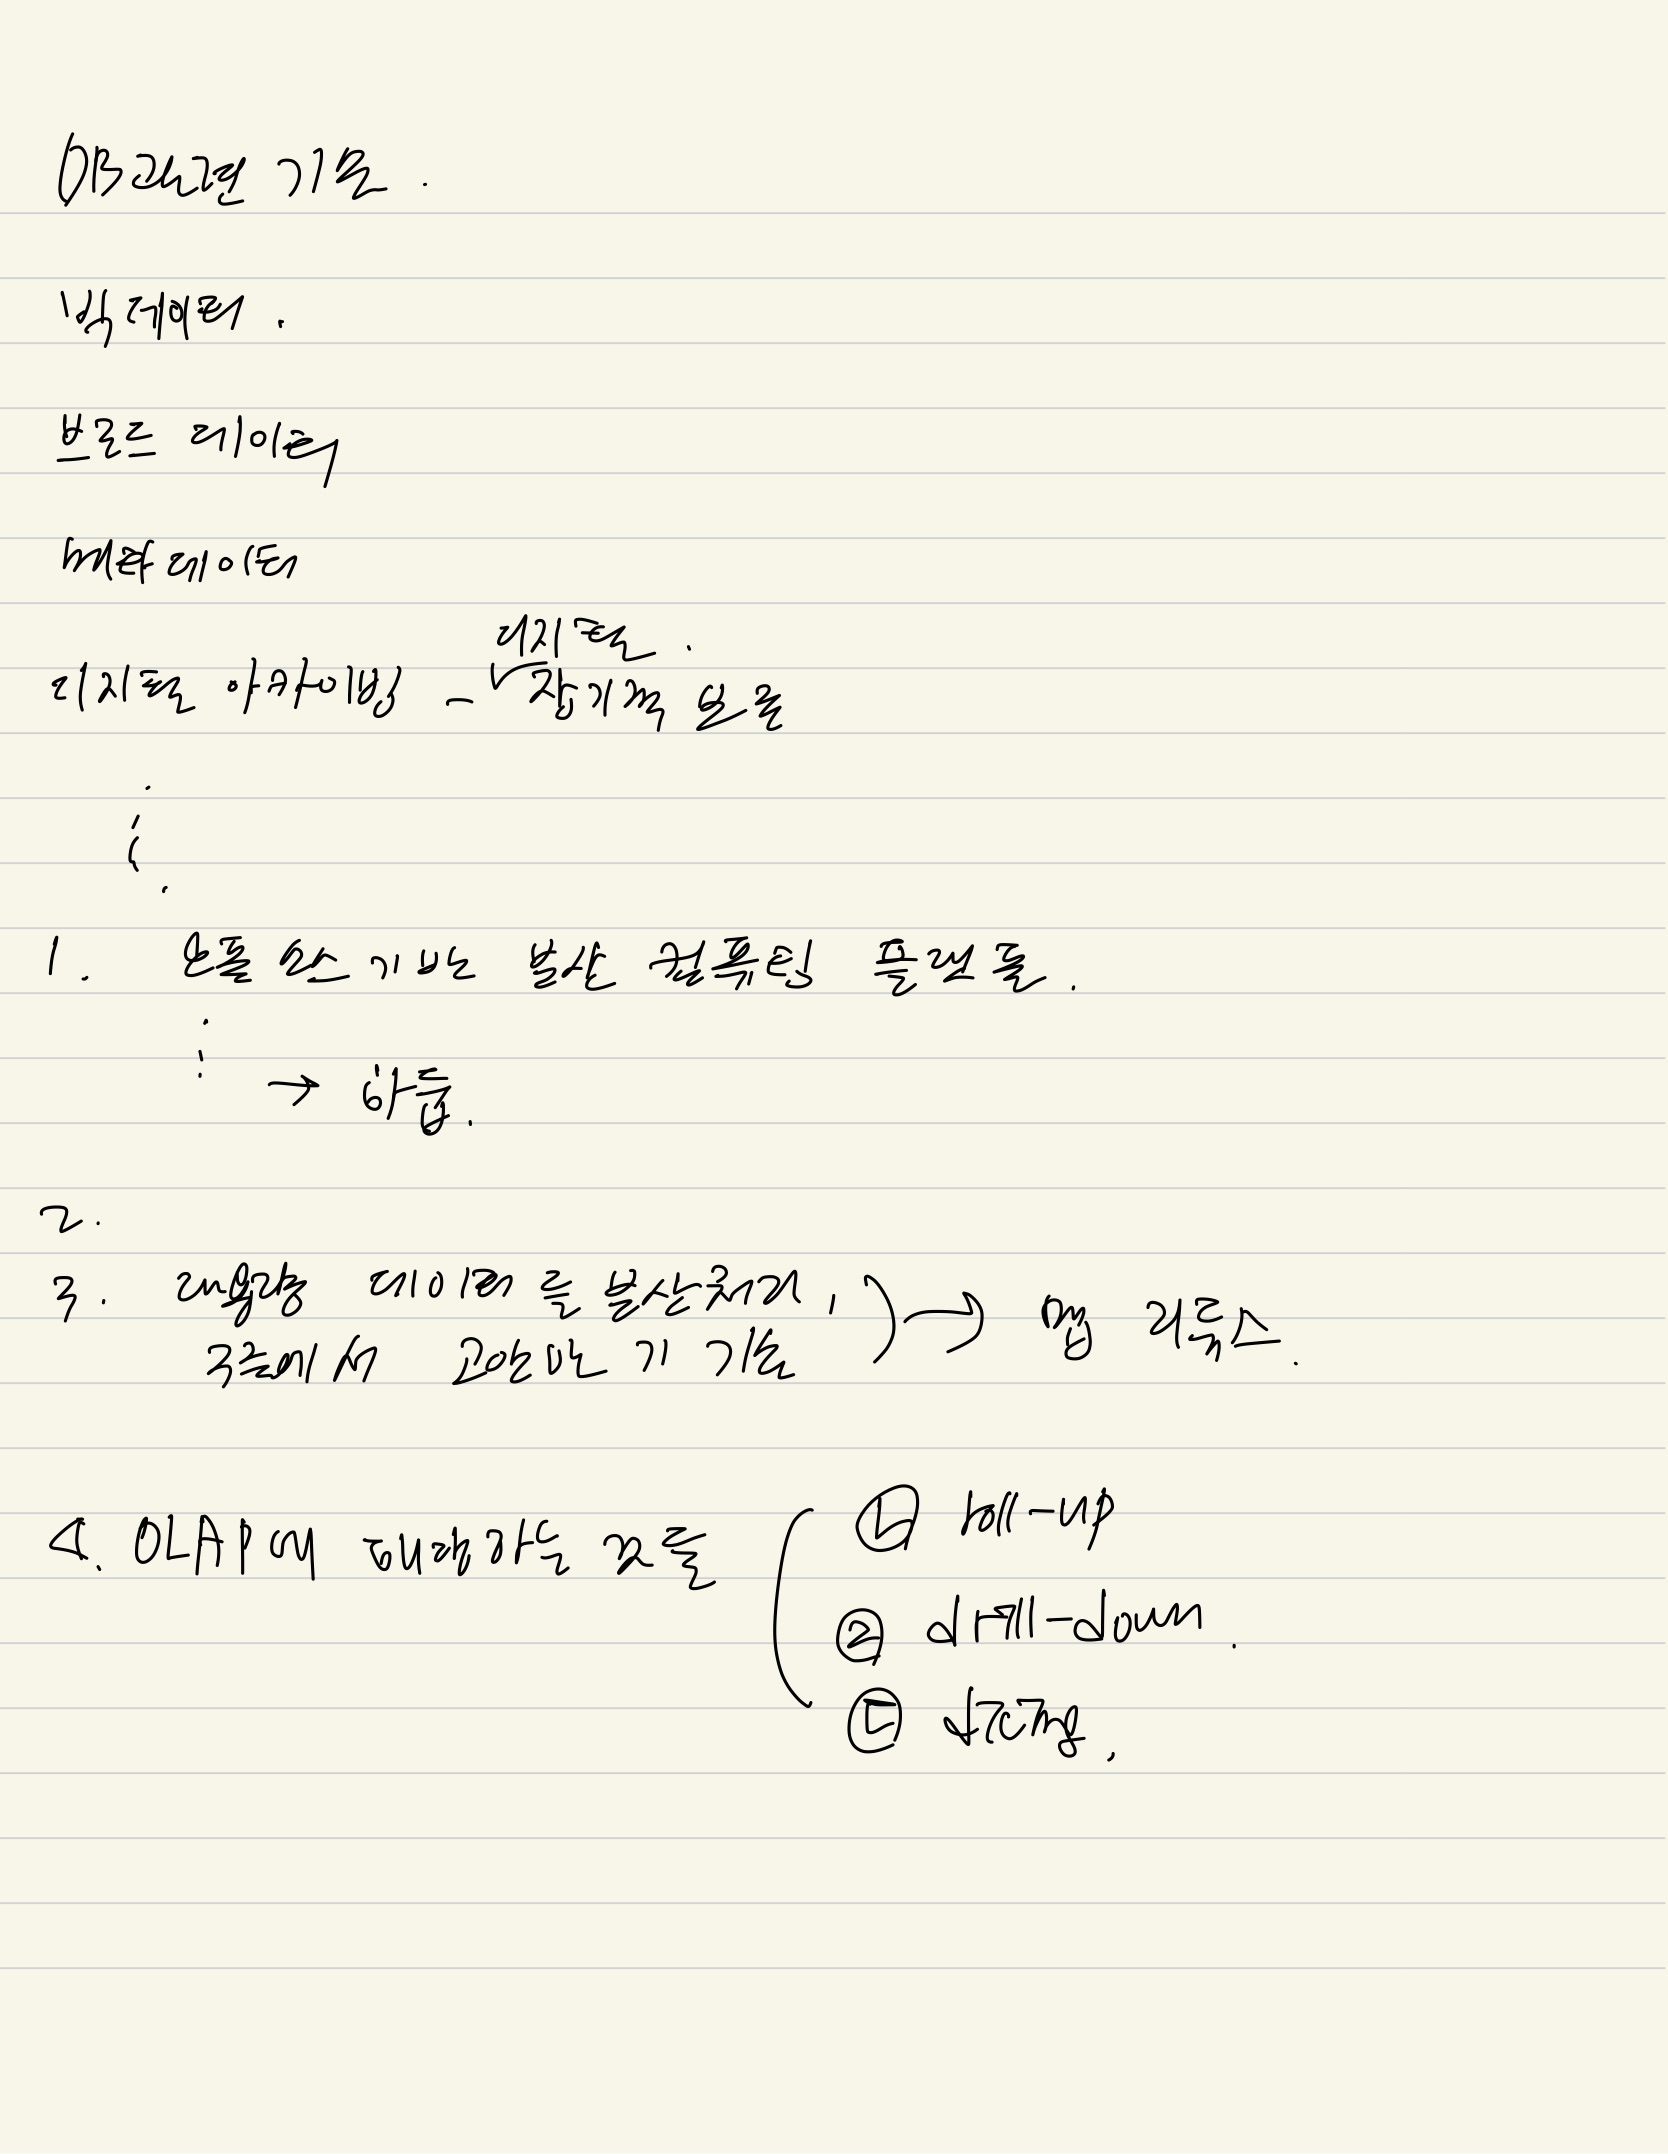 DB관련 기술.
빅데이터.
브로드 데이터
메타데이터
디지털.
디지털 아카이빙 - 장기적 보존
1. 오픈 소스 기반 분산 컴퓨팅 플랫폼.
→ 하둡.
2.
3. 대용량 데이터를 분산처리,
구글에서 고안한 기술 → 맵 리듀스.
4. OLAP에 해당하는 것들
㉡ roll-up
② drill-down.
㉢ dicing.